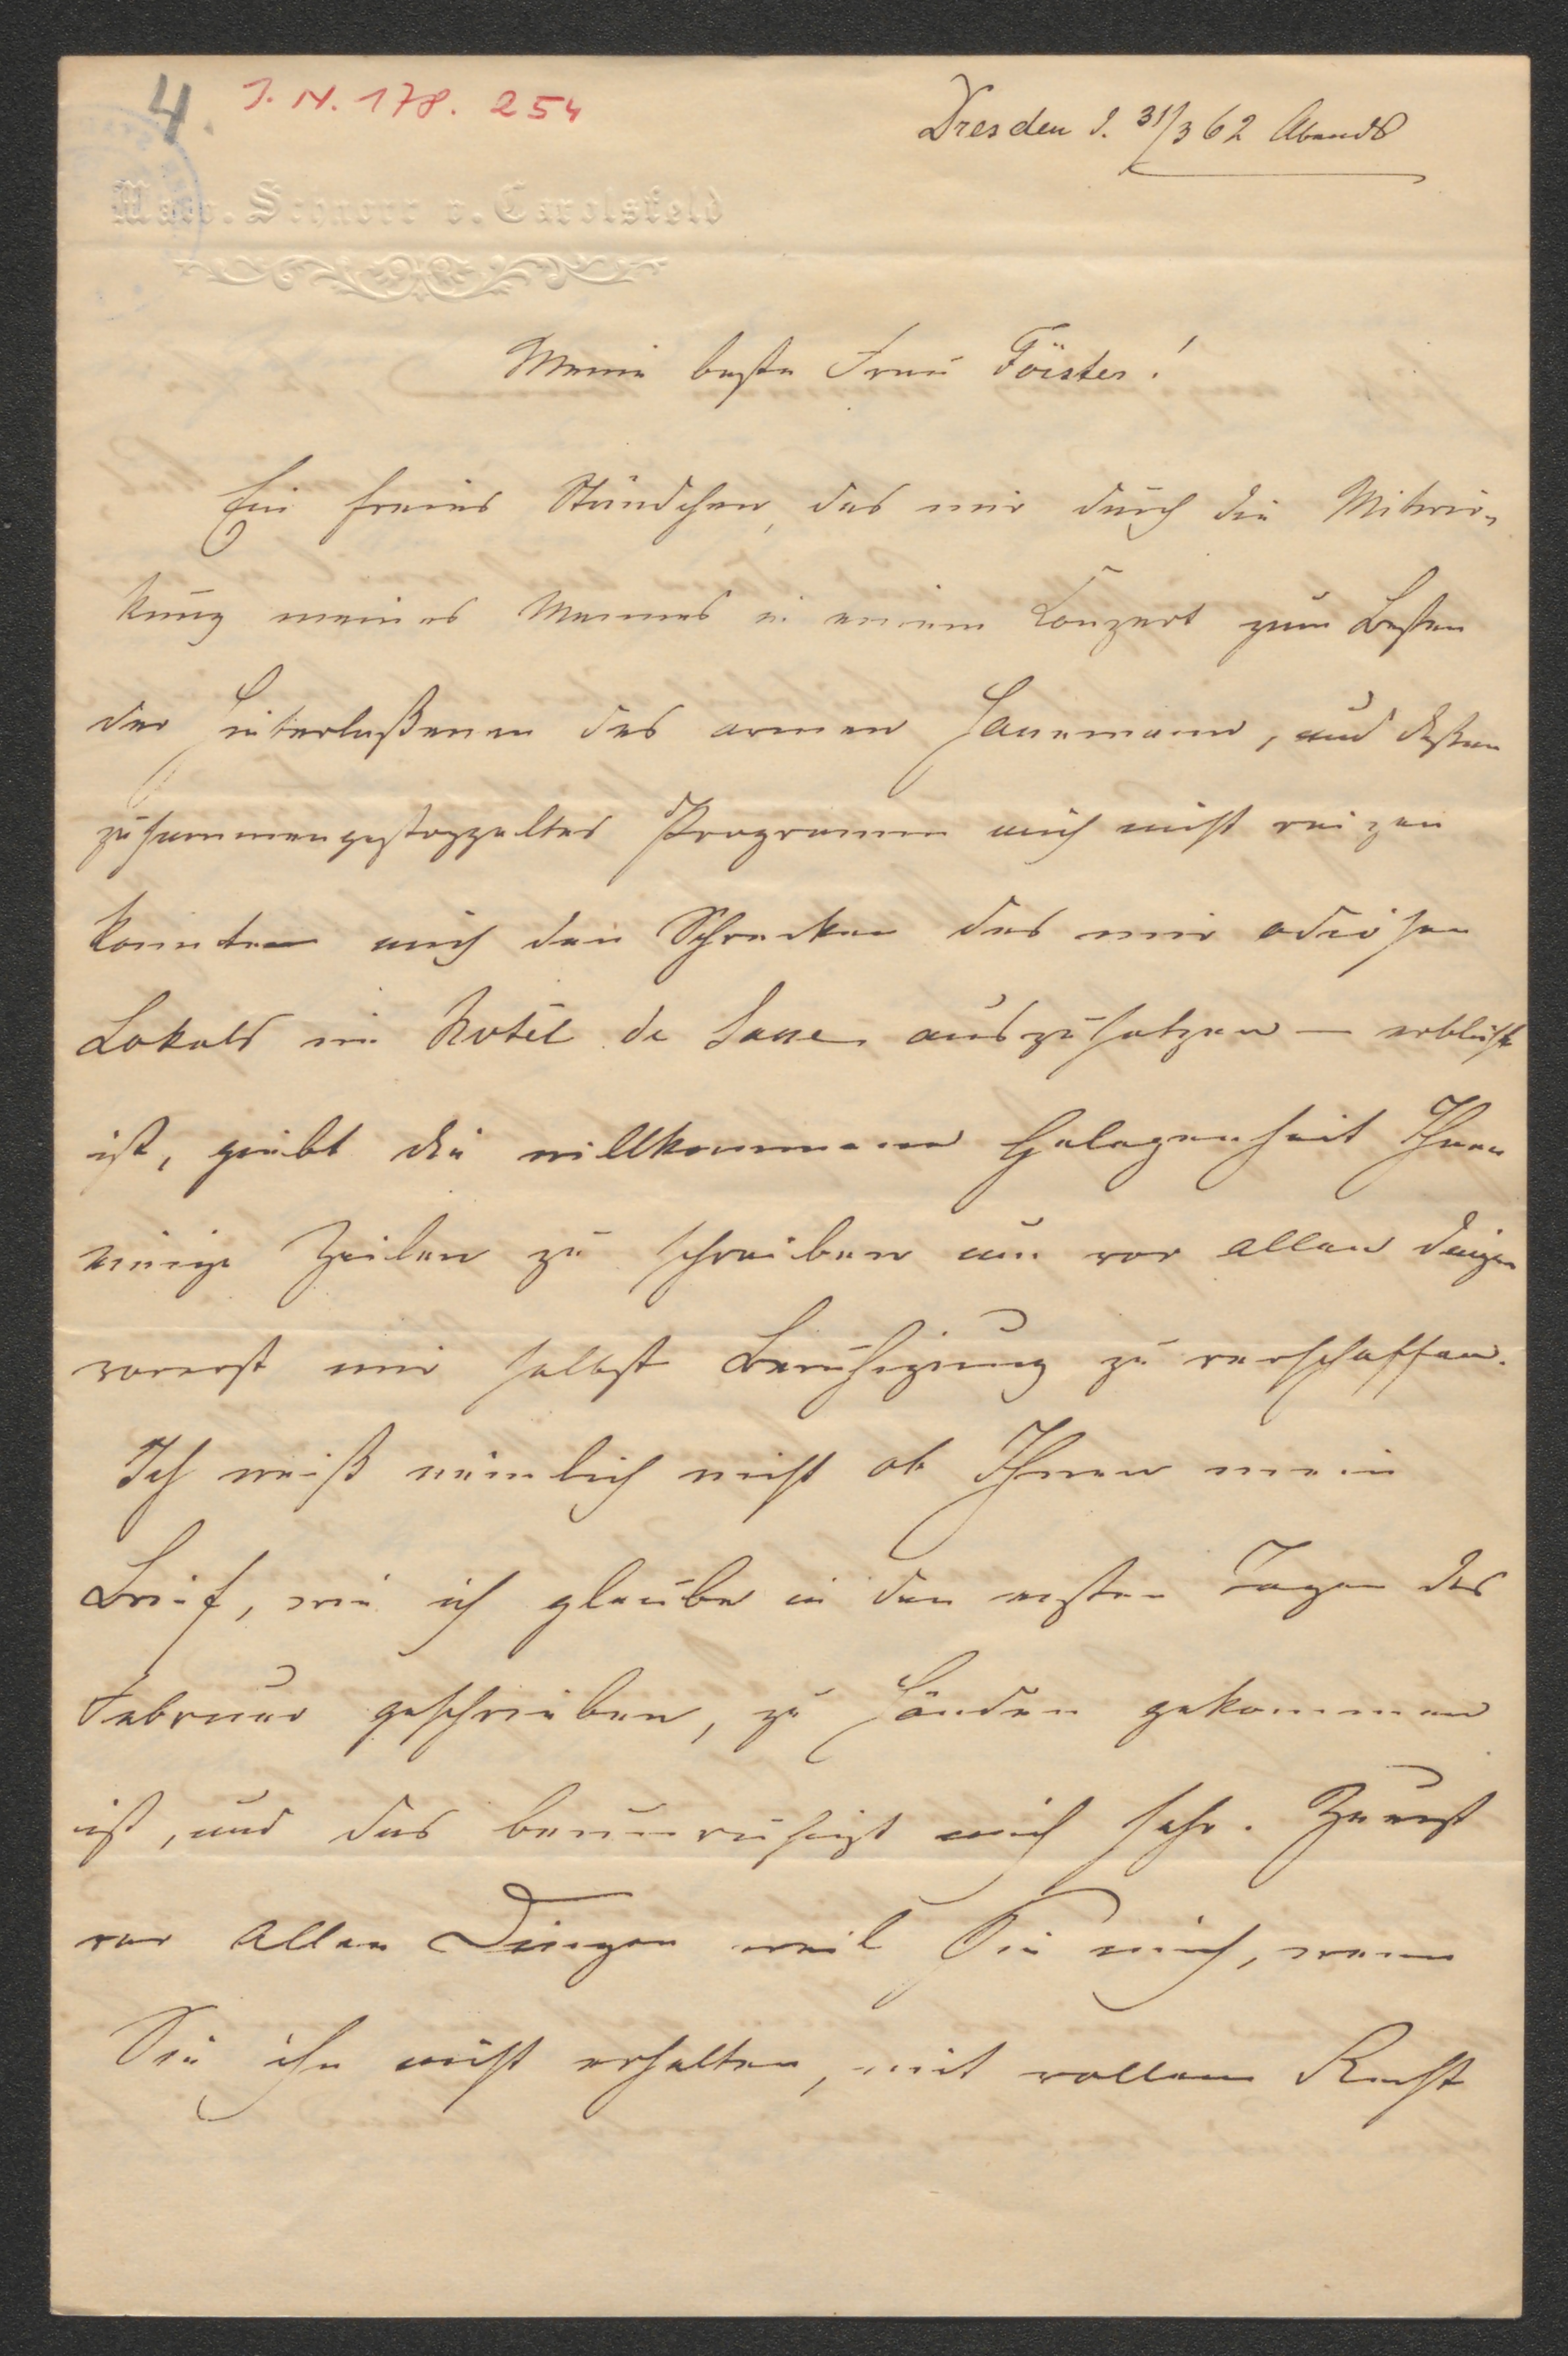 4.
J. N. 178. 254
Dresden d. 31/3 62 Abends
Malv. Schnorr v. Carolsfeld
Meine beste Frau Förster!
Ein freies Stündchen, das mir durch die Mitwir-
kung meines Mannes in einem Conzert zum Besten
der Hinterlaßenen des armen Hanemann, und deßen
zusammengestoppeltes Programm mich nicht reizen
konnten mich den Schrecken des mir odiösen
Lokals im Hotel de Saxe auszusetzen — erblüht
ist, giebt die willkommene Gelegenheit Ihnen
einige Zeilen zu schreiben um vor allen Dingen
vorerst mir selbst Beruhigung zu verschaffen.
Ich weiß nämlich nicht ob Ihnen mein
Brief, wie ich glaube in den ersten Tagen des
Februar geschrieben, zu Händen gekommen
ist, und das beunruhigt mich sehr. Zuerst
vor allen Dingen weil Sie mich, wenn
Sie ihn nicht erhalten, mit vollem Recht